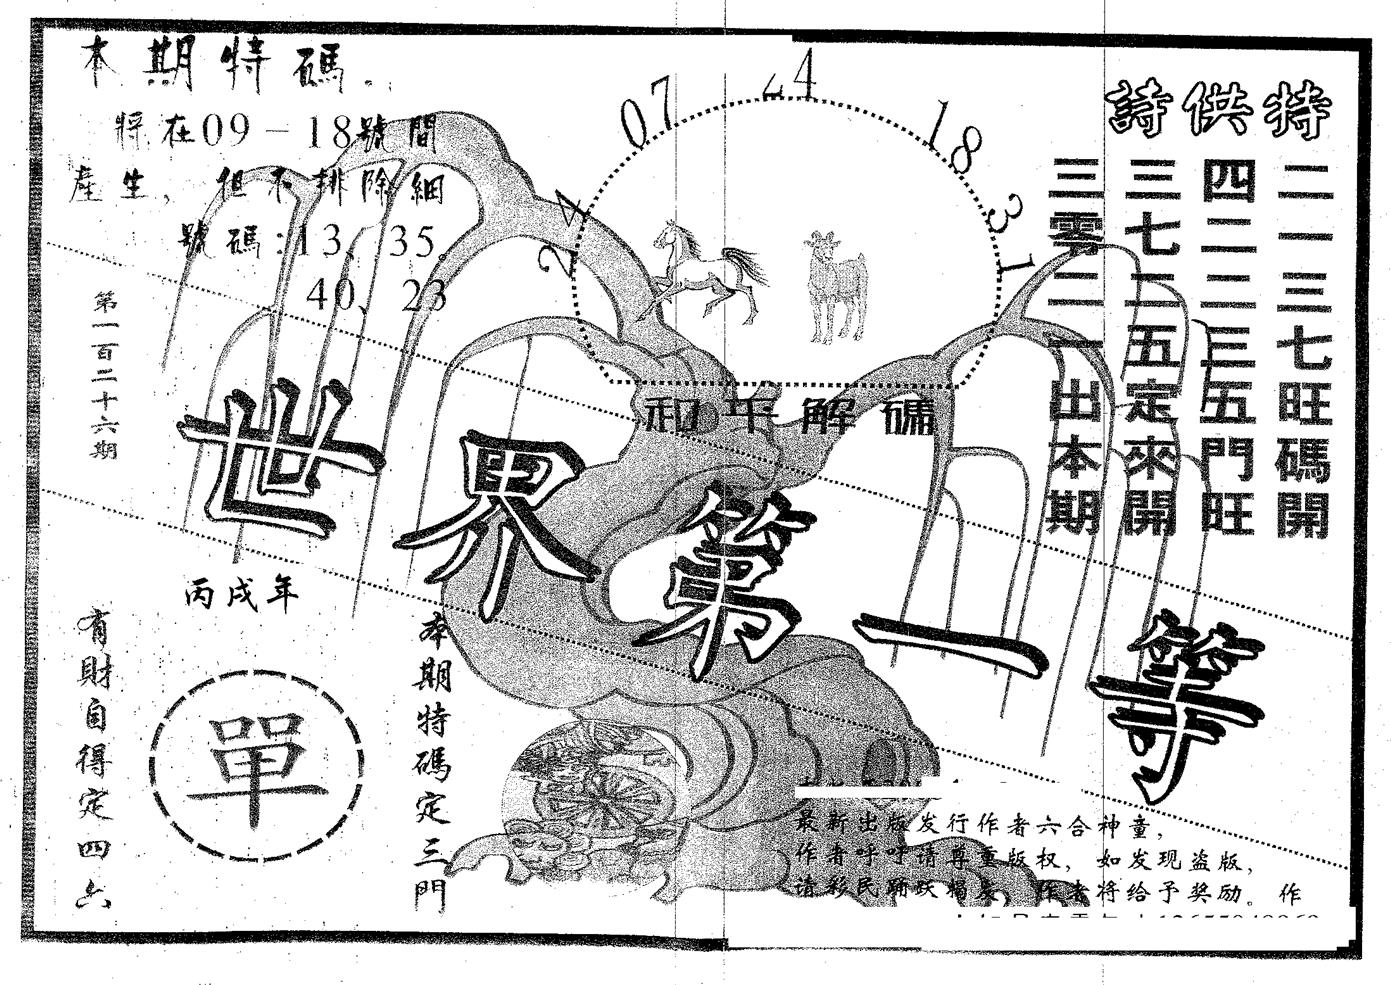 本期特碼.
將在09－18號間
產生，但不排除細
號碼:13、35。
40、23
第一百二十六期
24
07
24
18
31
和平解碼
特供詩
二一三七旺碼開
四二二三五門旺
三七二五定來開
三零二一出本期
世界第一等
丙戌年
有財自得定四六
單
本期特碼定三門
最新出版发行作者六合神童，
作者呼吁请尊重版权，如发现盗版，
请彩民踊跃揭发，作者将给予奖励。作